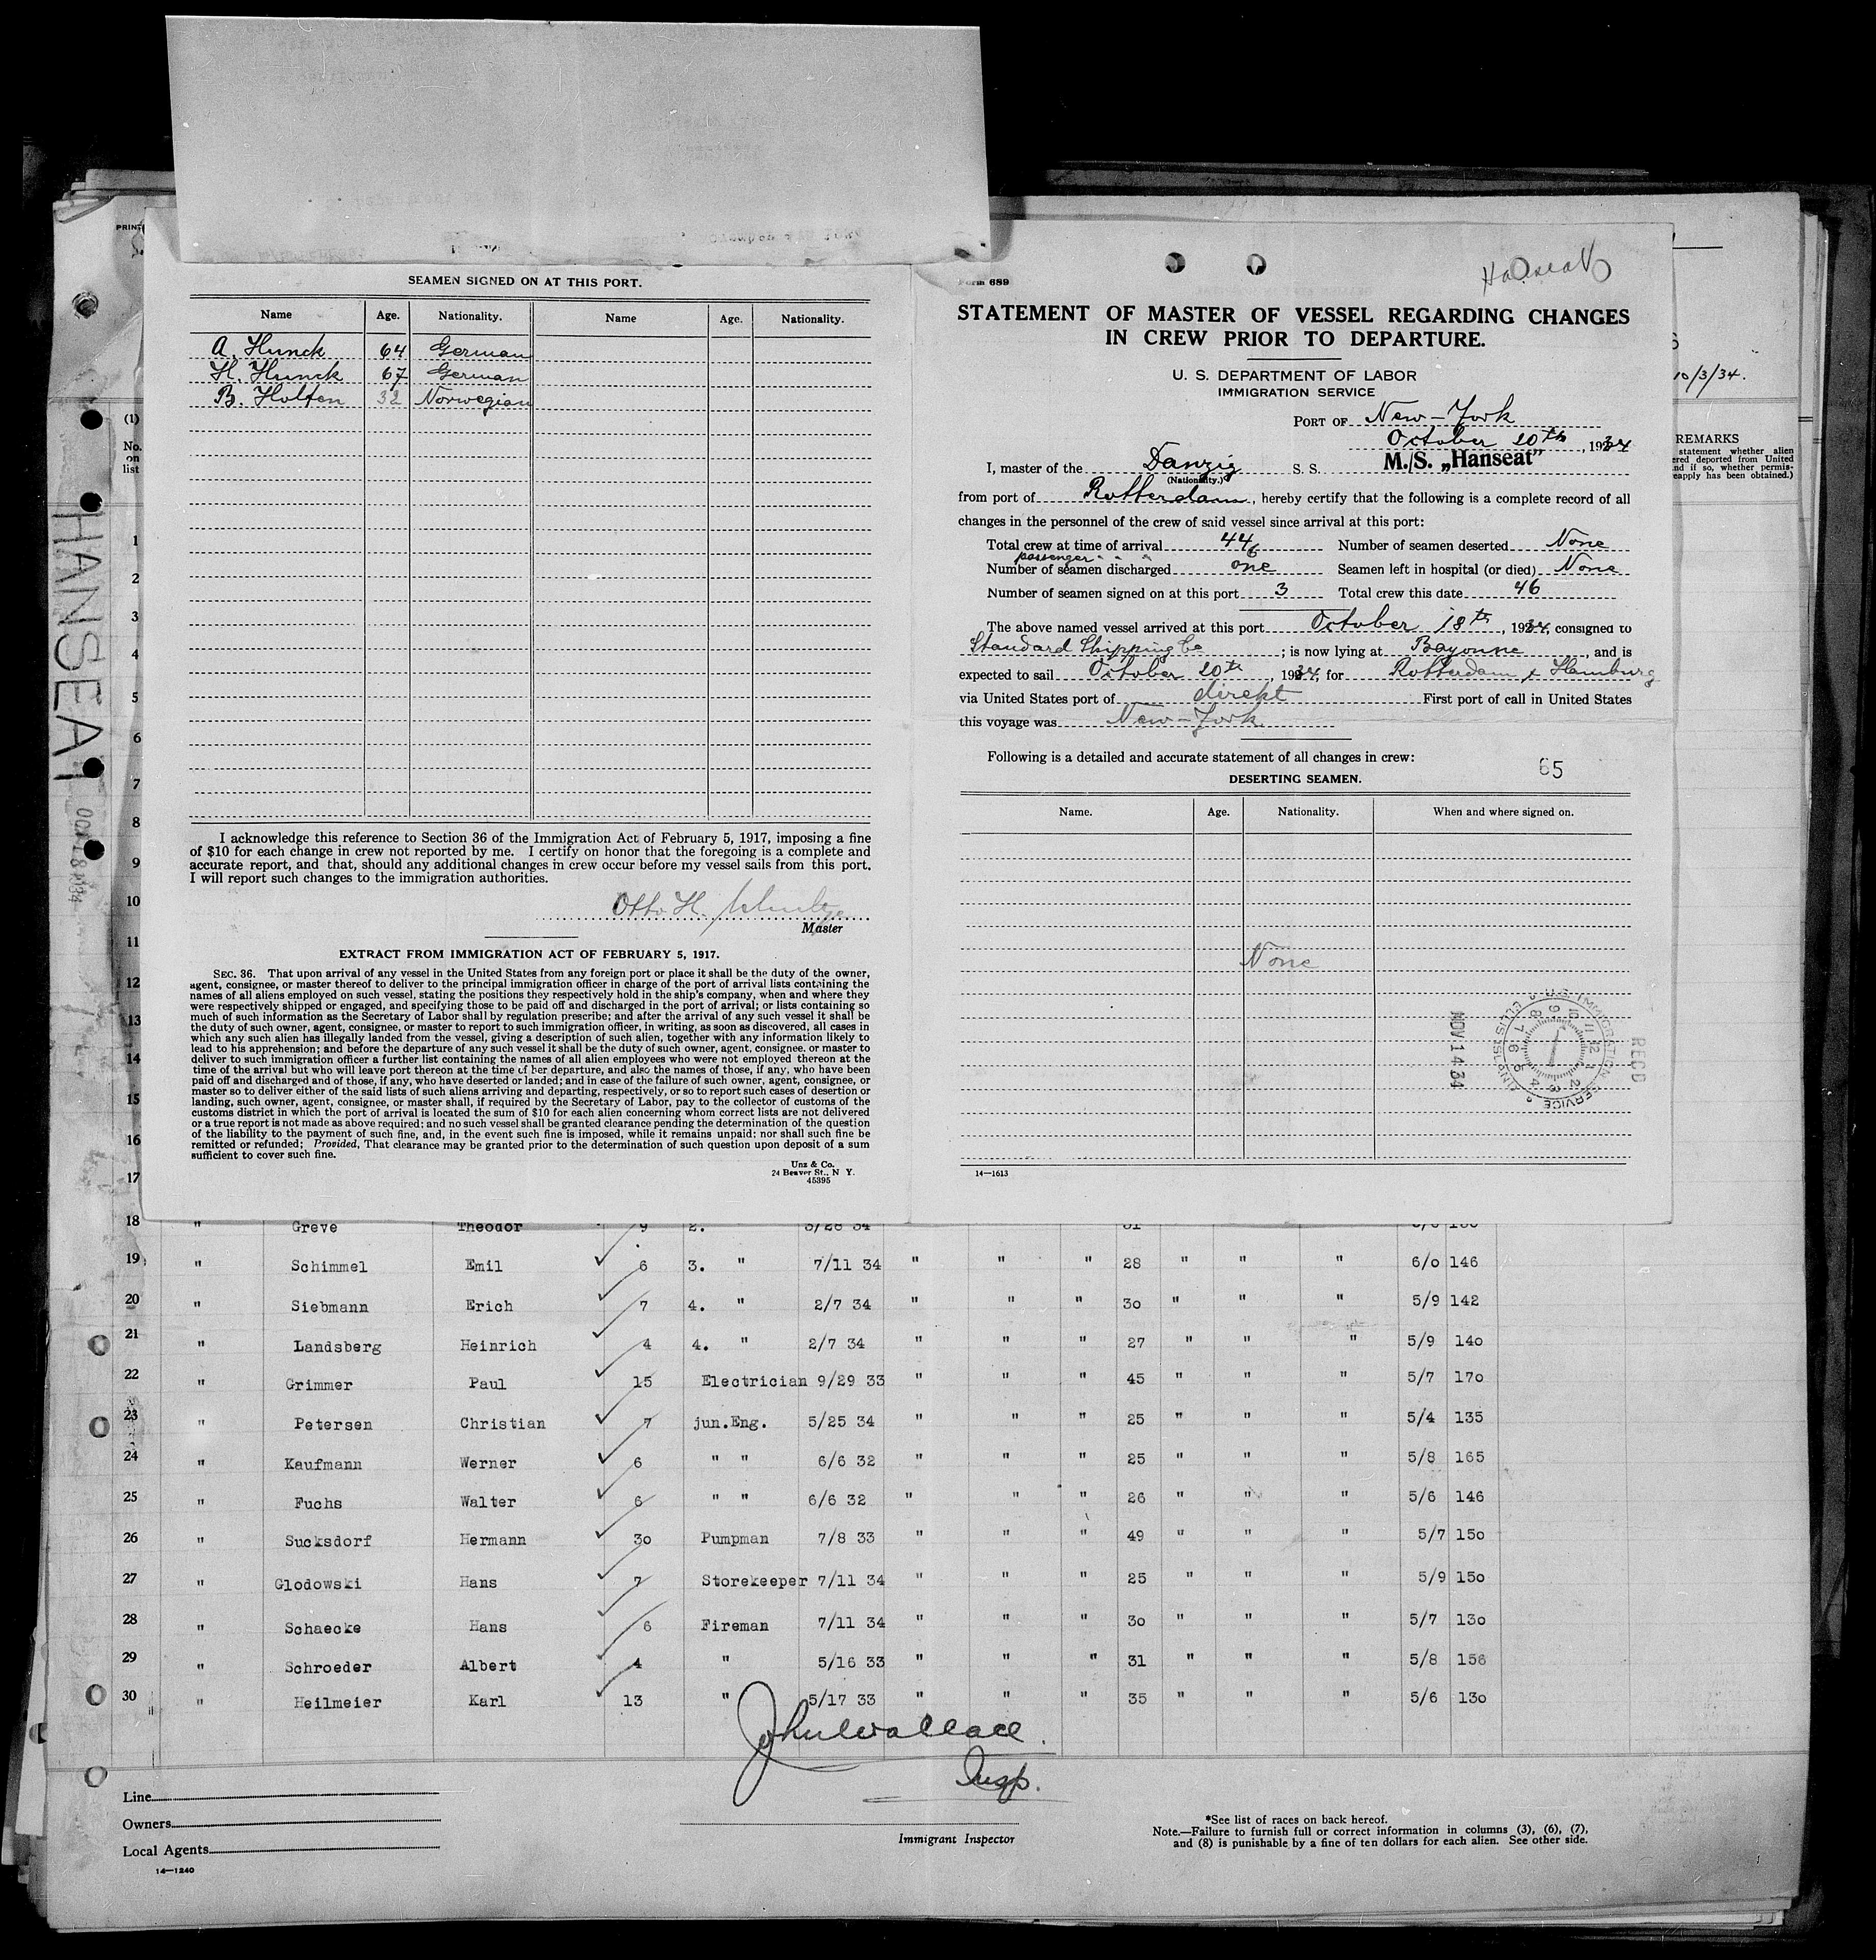 SEAMEN SIGNED ON AT THIS PORT.
Name Age. Nationality. Name Age. Nationality.
A. Hunck 64 German
H. Hunck 67 German
B. Holten 32 Norwegian
I acknowledge this reference to Section 36 of the Immigration Act of February 5, 1917, imposing a fine
of $10 for each change in crew not reported by me. I certify on honor that the foregoing is a complete and
accurate report, and that, should any additional changes in crew occur before my vessel sails from this port,
I will report such changes to the immigration authorities.
Otto H.
Master
EXTRACT FROM IMMIGRATION ACT OF FEBRUARY 5, 1917.
SEC. 36. That upon arrival of any vessel in the United States from any foreign port or place it shall be the duty of the owner,
agent, consignee, or master thereof to deliver to the principal immigration officer in charge of the port of arrival lists containing the
names of all aliens employed on such vessel, stating the positions they respectively hold in the ship's company, when and where they
were respectively shipped or engaged, and specifying those to be paid off and discharged in the port of arrival; or lists containing so
much of such information as the Secretary of Labor shall by regulation prescribe; and after the arrival of any such vessel it shall be
the duty of such owner, agent, consignee, or master to report to such immigration officer, in writing, as soon as discovered, all cases in
which any such alien has illegally landed from the vessel, giving a description of such alien, together with any information likely to
lead to his apprehension; and before the departure of any such vessel it shall be the duty of such owner, agent, consignee. or master to
deliver to such immigration officer a further list containing the names of all alien employees who were not employed thereon at the
time of the arrival but who will leave port thereon at the time of her departure, and also the names of those, if any, who have been
paid off and discharged and of those, if any, who have deserted or landed; and in case of the failure of such owner, agent, consignee, or
master so to deliver either of the said lists of such aliens arriving and departing, respectively, or so to report such cases of desertion or
landing, such owner, agent, consignee, or master shall, if required by the Secretary of Labor, pay to the collector of customs of the
customs district in which the port of arrival is located the sum of $10 for each alien concerning whom correct lists are not delivered
or a true report is not made as above required; and no such vessel shall be granted clearance pending the determination of the question
of the liability to the payment of such fine, and, in the event such fine is imposed, while it remains unpaid; nor shall such fine be
remitted or refunded; Provided, That clearance may be granted prior to the determination of such question upon deposit of a sum
sufficient to cover such fine.
Unz & Co.
24 Beaver St., N Y.
45395
Hanseat
Form 689
STATEMENT OF MASTER OF VESSEL REGARDING CHANGES
IN CREW PRIOR TO DEPARTURE.
U. S. DEPARTMENT OF LABOR
IMMIGRATION SERVICE
PORT OF New-York
October 20th, 1934
I, master of the Danzig S. S. M./S. „Hanseat"
(Nationality.)
from port of Rotterdam, hereby certify that the following is a complete record of all
changes in the personnel of the crew of said vessel since arrival at this port:
Total crew at time of arrival 44 Number of seamen deserted None
passenger " " " 6
Number of seamen discharged one Seamen left in hospital (or died) None
Number of seamen signed on at this port 3 Total crew this date 46
The above named vessel arrived at this port October 18th, 1934, consigned to
Standard Shipping Co; is now lying at Bayonne, and is
expected to sail October 20th, 1934, for Rotterdam & Hamburg
via United States port of direkt First port of call in United States
this voyage was New-York
Following is a detailed and accurate statement of all changes in crew:
65
DESERTING SEAMEN.
Name. Age. Nationality. When and where signed on.
None
NOV 14 34
U.S. IMMIGRATION SERVICE
RECD
14—1613
PRINT
10/3/34.
REMARKS
statement whether alien
ered deported from United
nd if so, whether permis-
eapply has been obtained.)
(1)
No.
on
list
HANSEAT
OCT 18 1934
1
2
3
4
5
6
7
8
9
10
11
12
13
14
15
16
17
18 " Greve Theodor 9 2. 34 31
19 " Schimmel Emil 6 3. " 7/11 34 " " " 28 " " " 6/0 146
20 " Siebmann Erich 7 4. " 2/7 34 " " " 30 " " " 5/9 142
21 " Landsberg Heinrich 4 4. " 2/7 34 " " " 27 " " " 5/9 140
22 " Grimmer Paul 15 Electrician 9/29 33 " " " 45 " " " 5/7 170
23 " Petersen Christian 7 jun.Eng. 5/25 34 " " " 25 " " " 5/4 135
24 " Kaufmann Werner 6 " " 6/6 32 " " " 25 " " " 5/8 165
25 " Fuchs Walter 6 " " 6/6 32 " " " 26 " " " 5/6 146
26 " Sucksdorf Hermann 30 Pumpman 7/8 33 " " " 49 " " " 5/7 150
27 " Glodowski Hans 7 Storekeeper 7/11 34 " " " 25 " " " 5/9 150
28 " Schaecke Hans 6 Fireman 7/11 34 " " " 30 " " " 5/7 130
29 " Schroeder Albert 4 " 5/16 33 " " " 31 " " " 5/8 156
30 " Heilmeier Karl 13 " 5/17 33 " " " 35 " " " 5/6 130
John Wallace
Insp.
Line
Owners
Local Agents
14—1240
Immigrant Inspector
*See list of races on back hereof.
Note.—Failure to furnish full or correct information in columns (3), (6), (7),
and (8) is punishable by a fine of ten dollars for each alien. See other side.